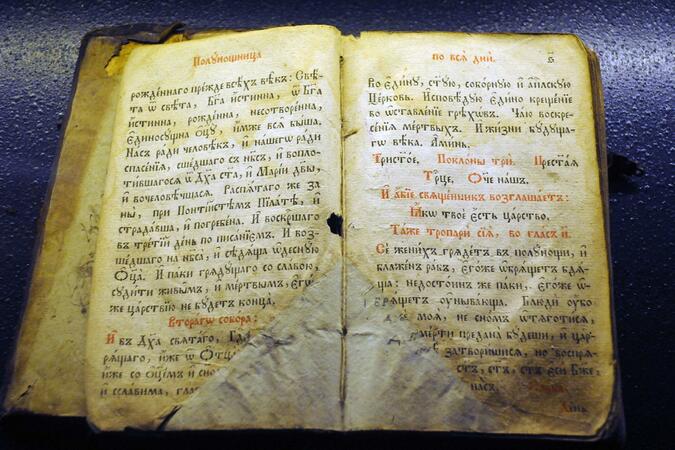 Полꙋ́нощница
рожде́ннаго пре́жде всѣ́хъ вѣ́къ: Свѣ́-
та ѿ свѣ́та, Бг҃а и́стинна, ѿ Бг҃а
и́стинна, рожде́нна, несотворе́нна,
Є҆диносꙋ́щна Ѻ҆ц҃ꙋ̀, и҆́мже всѧ̑ бы́ша.
На́съ ра́ди человѣ́къ, и҆ на́шегѡ ра́ди
спасе́нїѧ, сше́дшаго съ нб҃съ, и҆ вопло-
ти́вшагосѧ ѿ Дх҃а ст҃а, и҆ Марі́и дв҃ы,
и҆ вочеловѣ́чшасѧ. Распѧ́таго же за
ны̀, при Понті́йстѣмъ Пїла́тѣ, и҆
страда́вша, и҆ погребе́на. И҆ воскре́сшаго
въ тре́тїй де́нь по писа́нїємъ. И҆ воз-
ше́дшаго на нб҃са̀, и҆ сѣдѧ́ща ѡ҆деснꙋ́ю
Ѻ҆ц҃а̀. И҆ па́ки грѧдꙋ́щаго со сла́вою,
сꙋди́ти живы̑мъ, и҆ ме́ртвымъ, є҆гѡ́-
же ца́рствїю не бꙋ́детъ конца̀.
Втора́гѡ собо́ра:
И҆ въ Дх҃а свѧта́го,
рѧ́щаго, и҆́же ѿ Ѻ҆тц
и҆́же со Ѻ҆ц҃е́мъ и҆
и҆ ссла́вима,
по всѧ̑ дни̑.
Во є҆ди́нꙋ, ст҃ꙋ́ю, собо́рнꙋю и҆ а҆пⷭ҇льскꙋю
Це́рковь. И҆сповѣ́дꙋю є҆ди́но креще́нїе
во ѡ҆ставле́нїе грѣхѡ́въ. Ча́ю воскре-
се́нїѧ ме́ртвыхъ. И҆ жи́зни бꙋ́дꙋща-
гѡ вѣ́ка. А҆ми́нь.
Трист҃о́е, Покло́ны трѝ. Прест҃а́ѧ
Трⷪ҇це, Ѻ҆́че на́шъ.
И҆ а҆́бїе свѧще́нникъ возглаша́етъ:
Ꙗ҆́кѡ твоѐ є҆́сть ца́рство.
Та́же тропари̑ сїѧ̑, во гла́съ и҃.
Сѐ жени́хъ грѧде́тъ въ полꙋ́нощи, и҆
блаже́нъ ра́бъ, є҆го́же ѡ҆брѧ́щетъ бдѧ́-
ща: недосто́инъ же па́ки, є҆го́же ѡ҆-
брѧ́щетъ ᲂу҆ныва́юща. Блюдѝ ᲂу҆̀бо
моѧ̀, не сно́мъ ѡ҆тѧготи́сѧ,
сме́рти предана̀ бꙋ́деши, и҆ ца́р-
затвори́шисѧ, но воспрѧ-
ст҃ъ, ст҃ъ, ст҃ъ є҆сѝ Бж҃е,
на́съ.